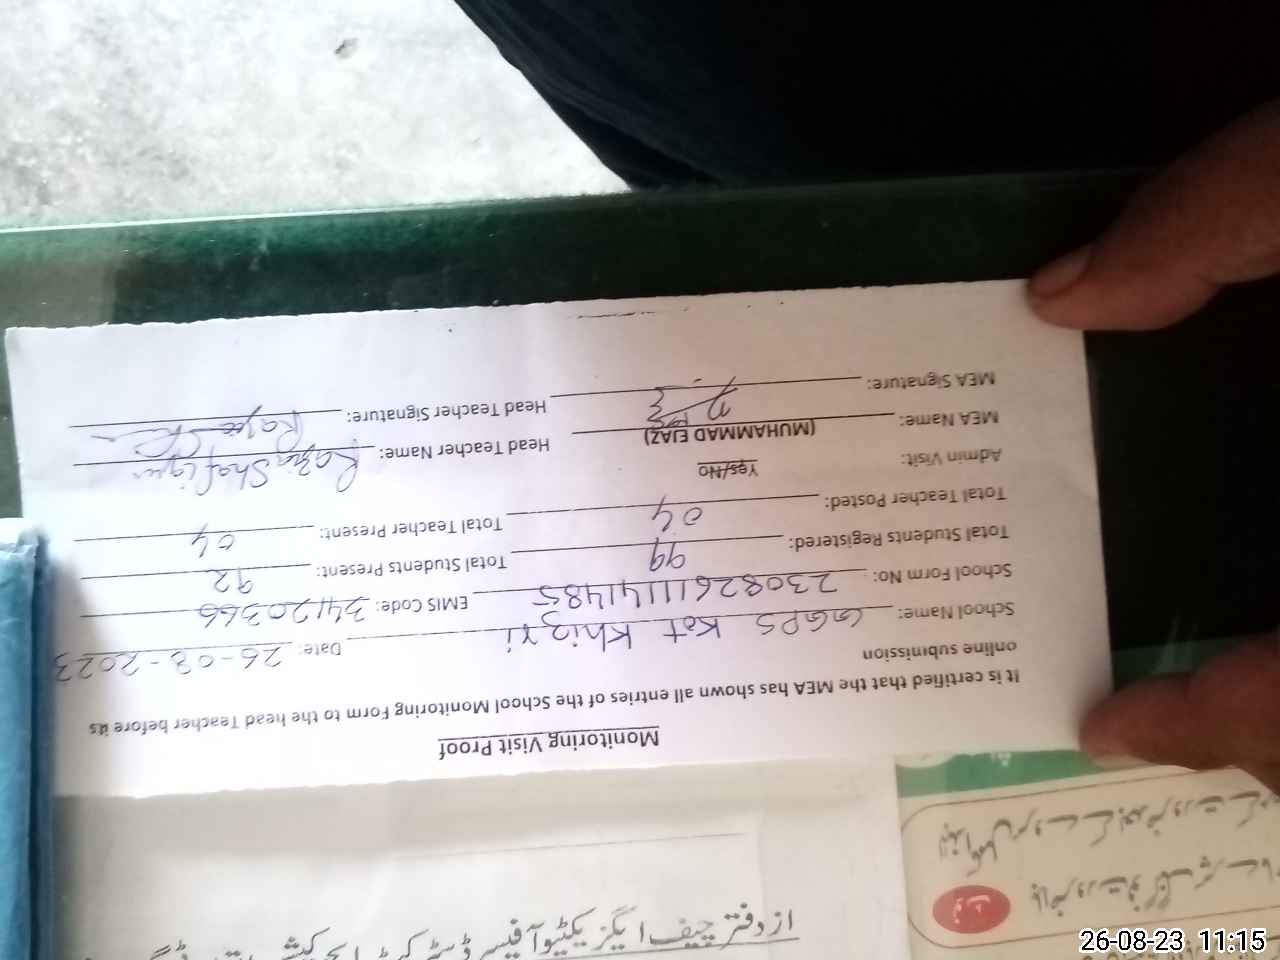 Monitoring Visit Proof
It is certified that the MEA has shown all entries of the School Monitoring Form to the head Teacher before its
online submission
School Name: GGPS Kot Khizri Date: 26-08-2023
School Form No: 23082611141485 EMIS Code: 34120366
Total Students Registered: 99 Total Students Present: 92
Total Teacher Posted: 04 Total Teacher Present: 04
Admin Visit: Yes/No
MEA Name: (MUHAMMAD EJAZ) Head Teacher Name: Razia Shafique
MEA Signature: Head Teacher Signature:
از دفتر چیف ایگزیکٹیو آفیسر
26-08-23 11:15